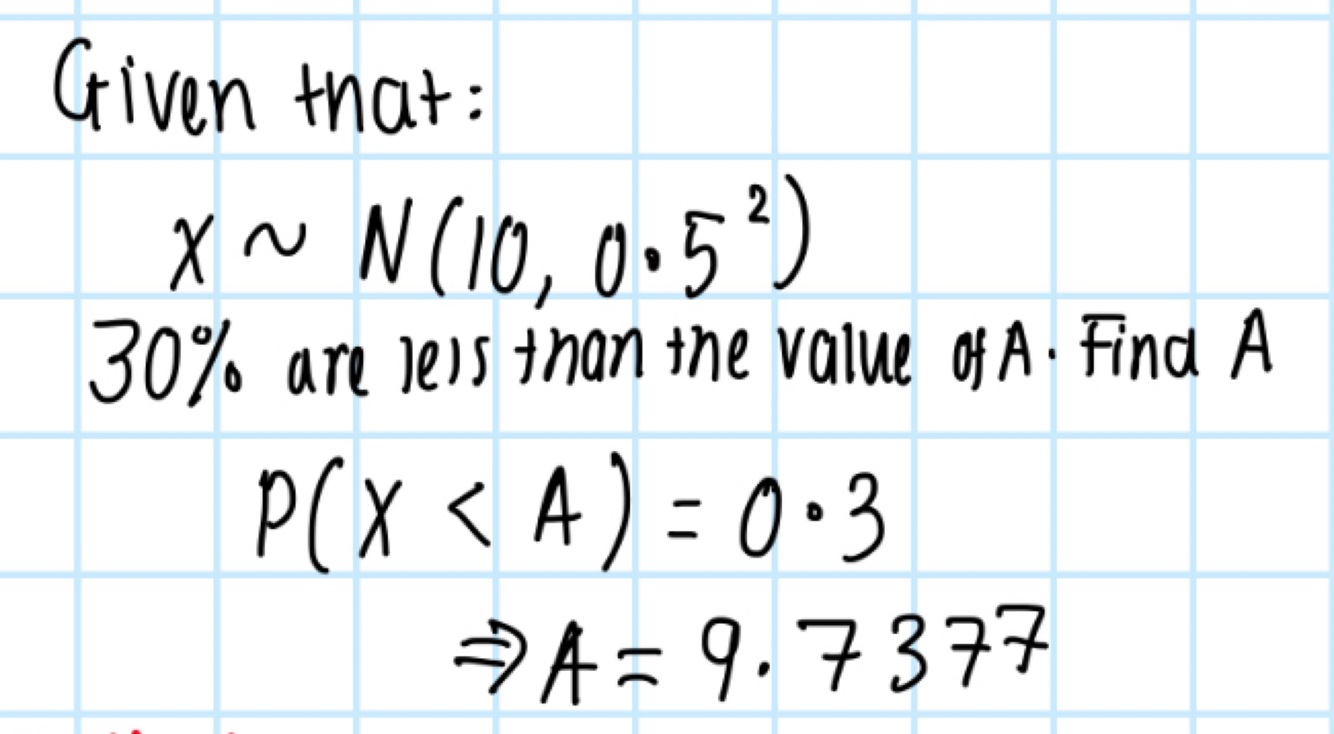 Given that:
X ~ N(10, 0.5²)
30% are less than the value of A. Find A
P(X < A) = 0.3
⇒ A = 9.7377